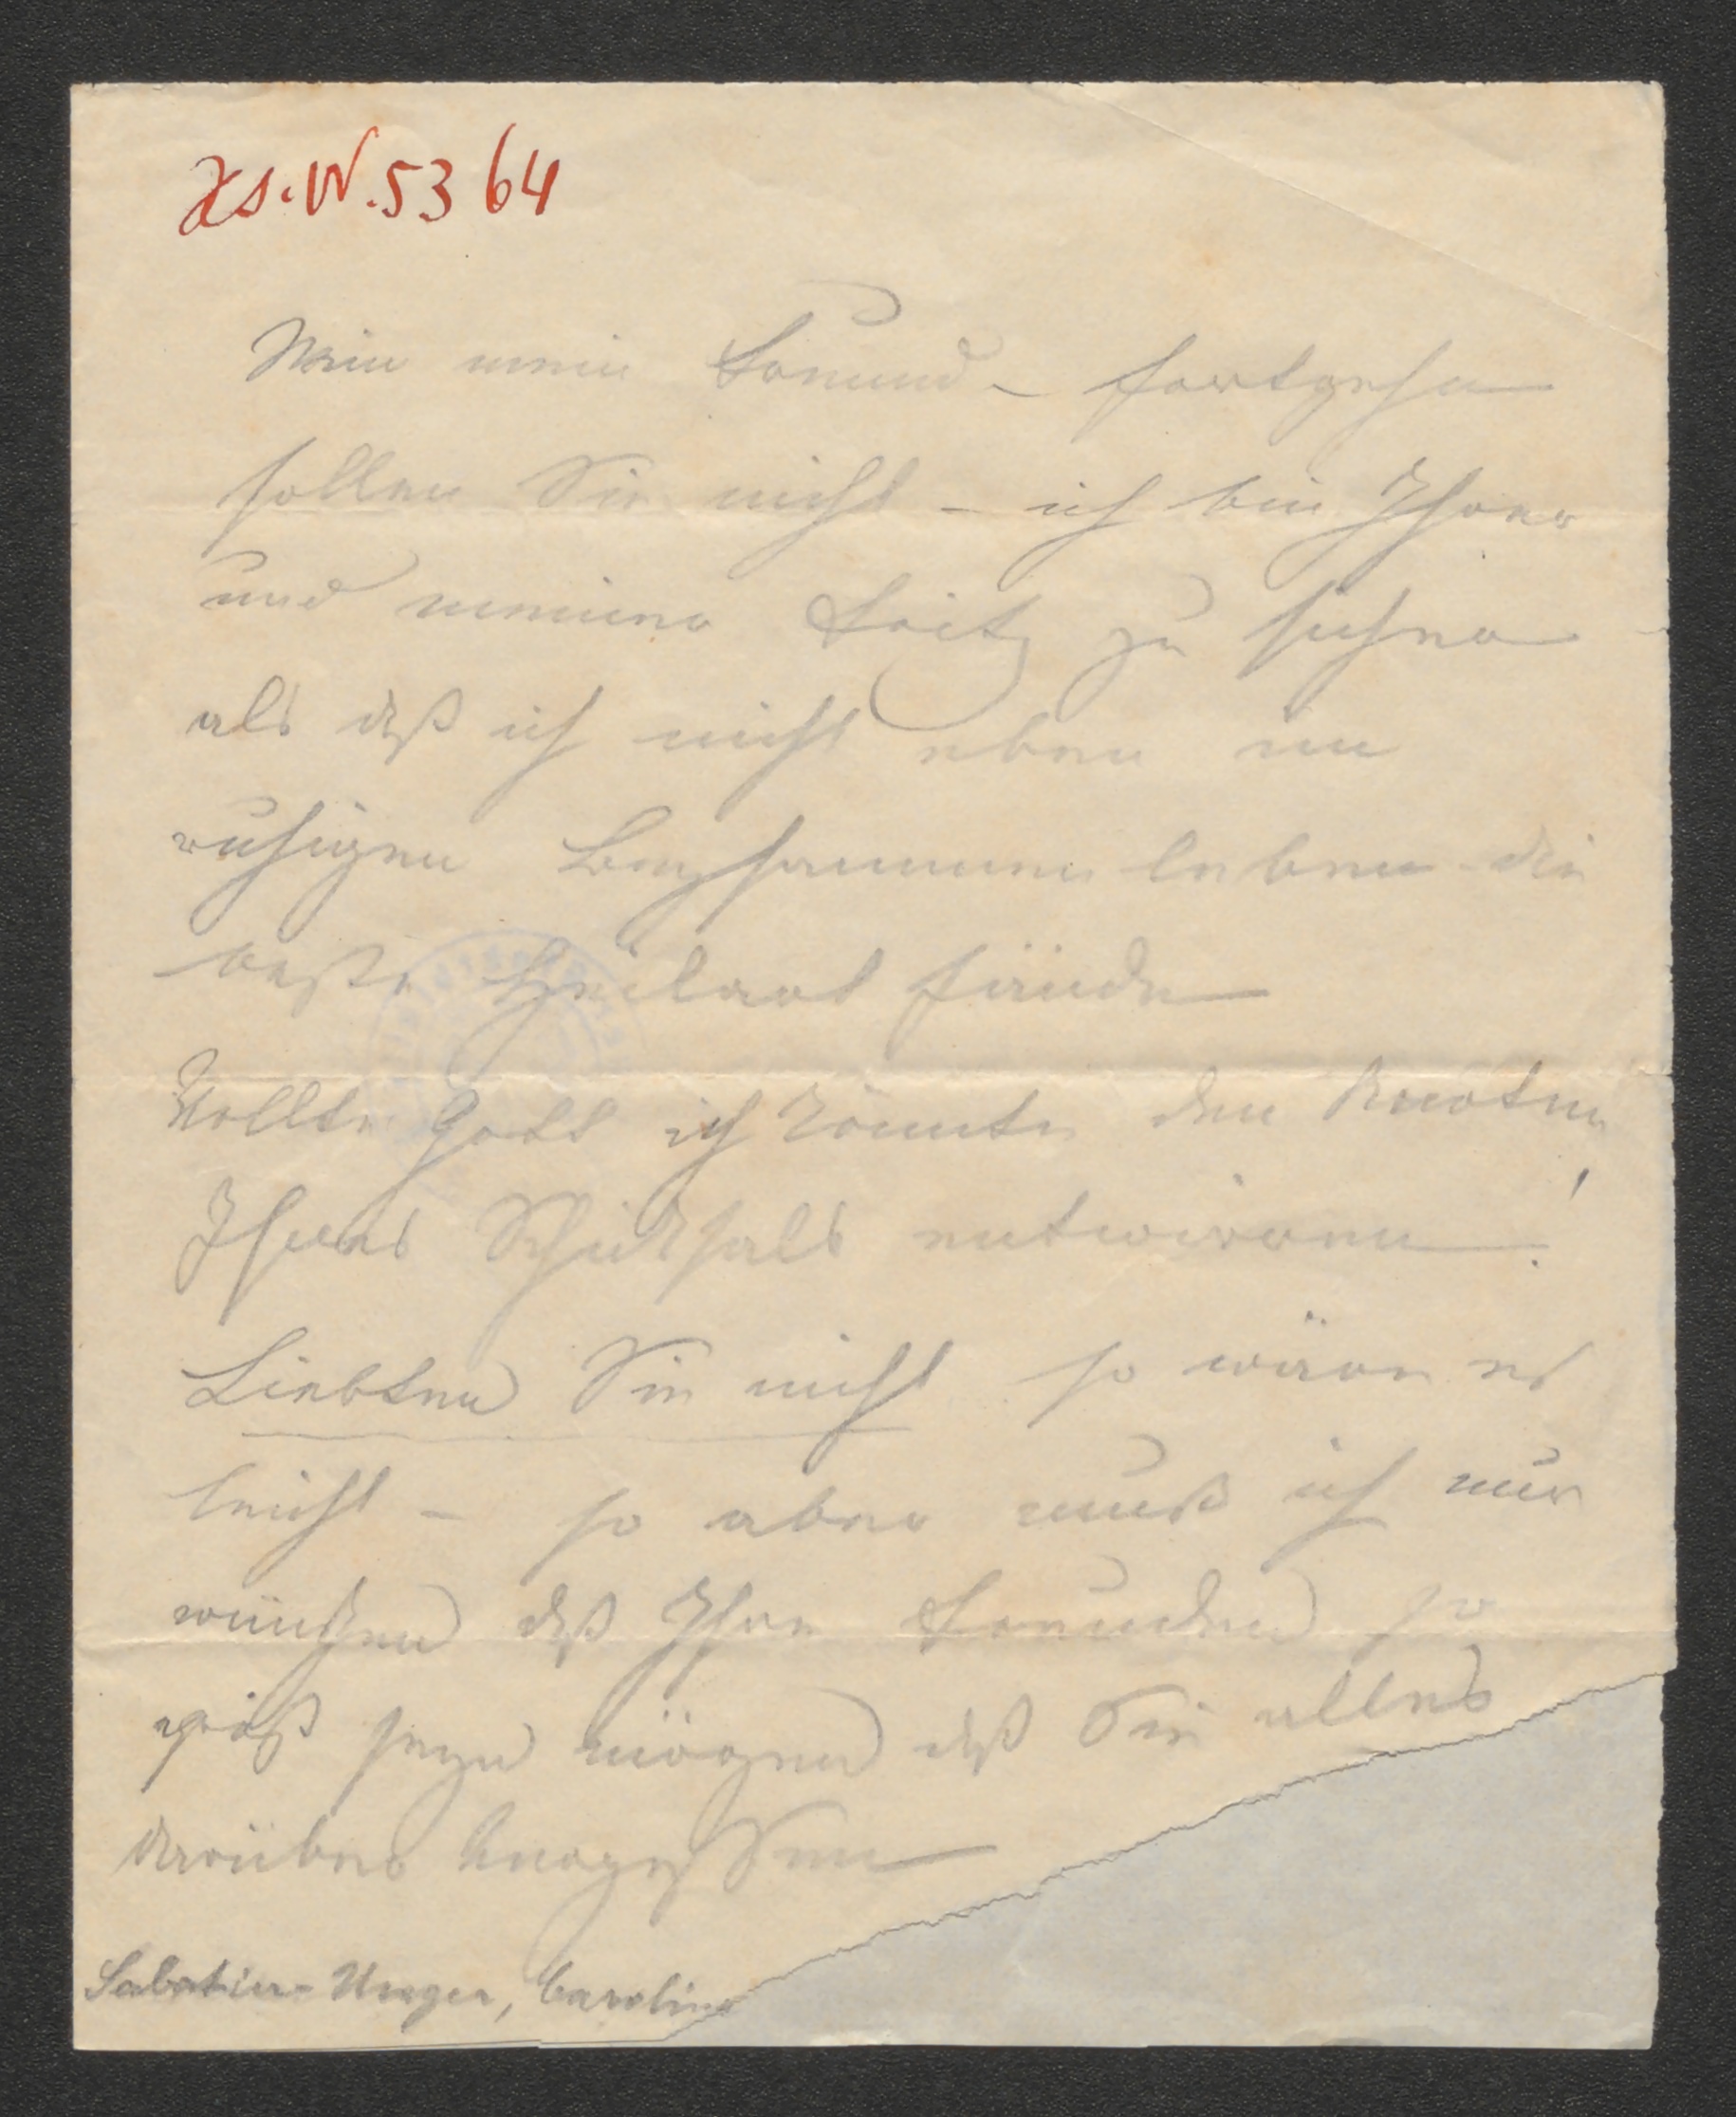 Hs. N. 5364
Nein mein Freund – fortgehn
sollen Sie nicht – ich bin Ihrer
und meiner Seits zu sicher
als daß ich nicht eben im
ruhigen Beysammenleben die
beste Heilart fände
Wollte Gott ich könnte den Knoten
Ihres Schicksals entwirren!
Liebten Sie nicht so wäre es
leicht – so aber muß ich nur
wünschen daß Ihre Freuden so
groß seyn mögen daß Sie alles
darüber vergessen
Sabatier-Unger, Caroline